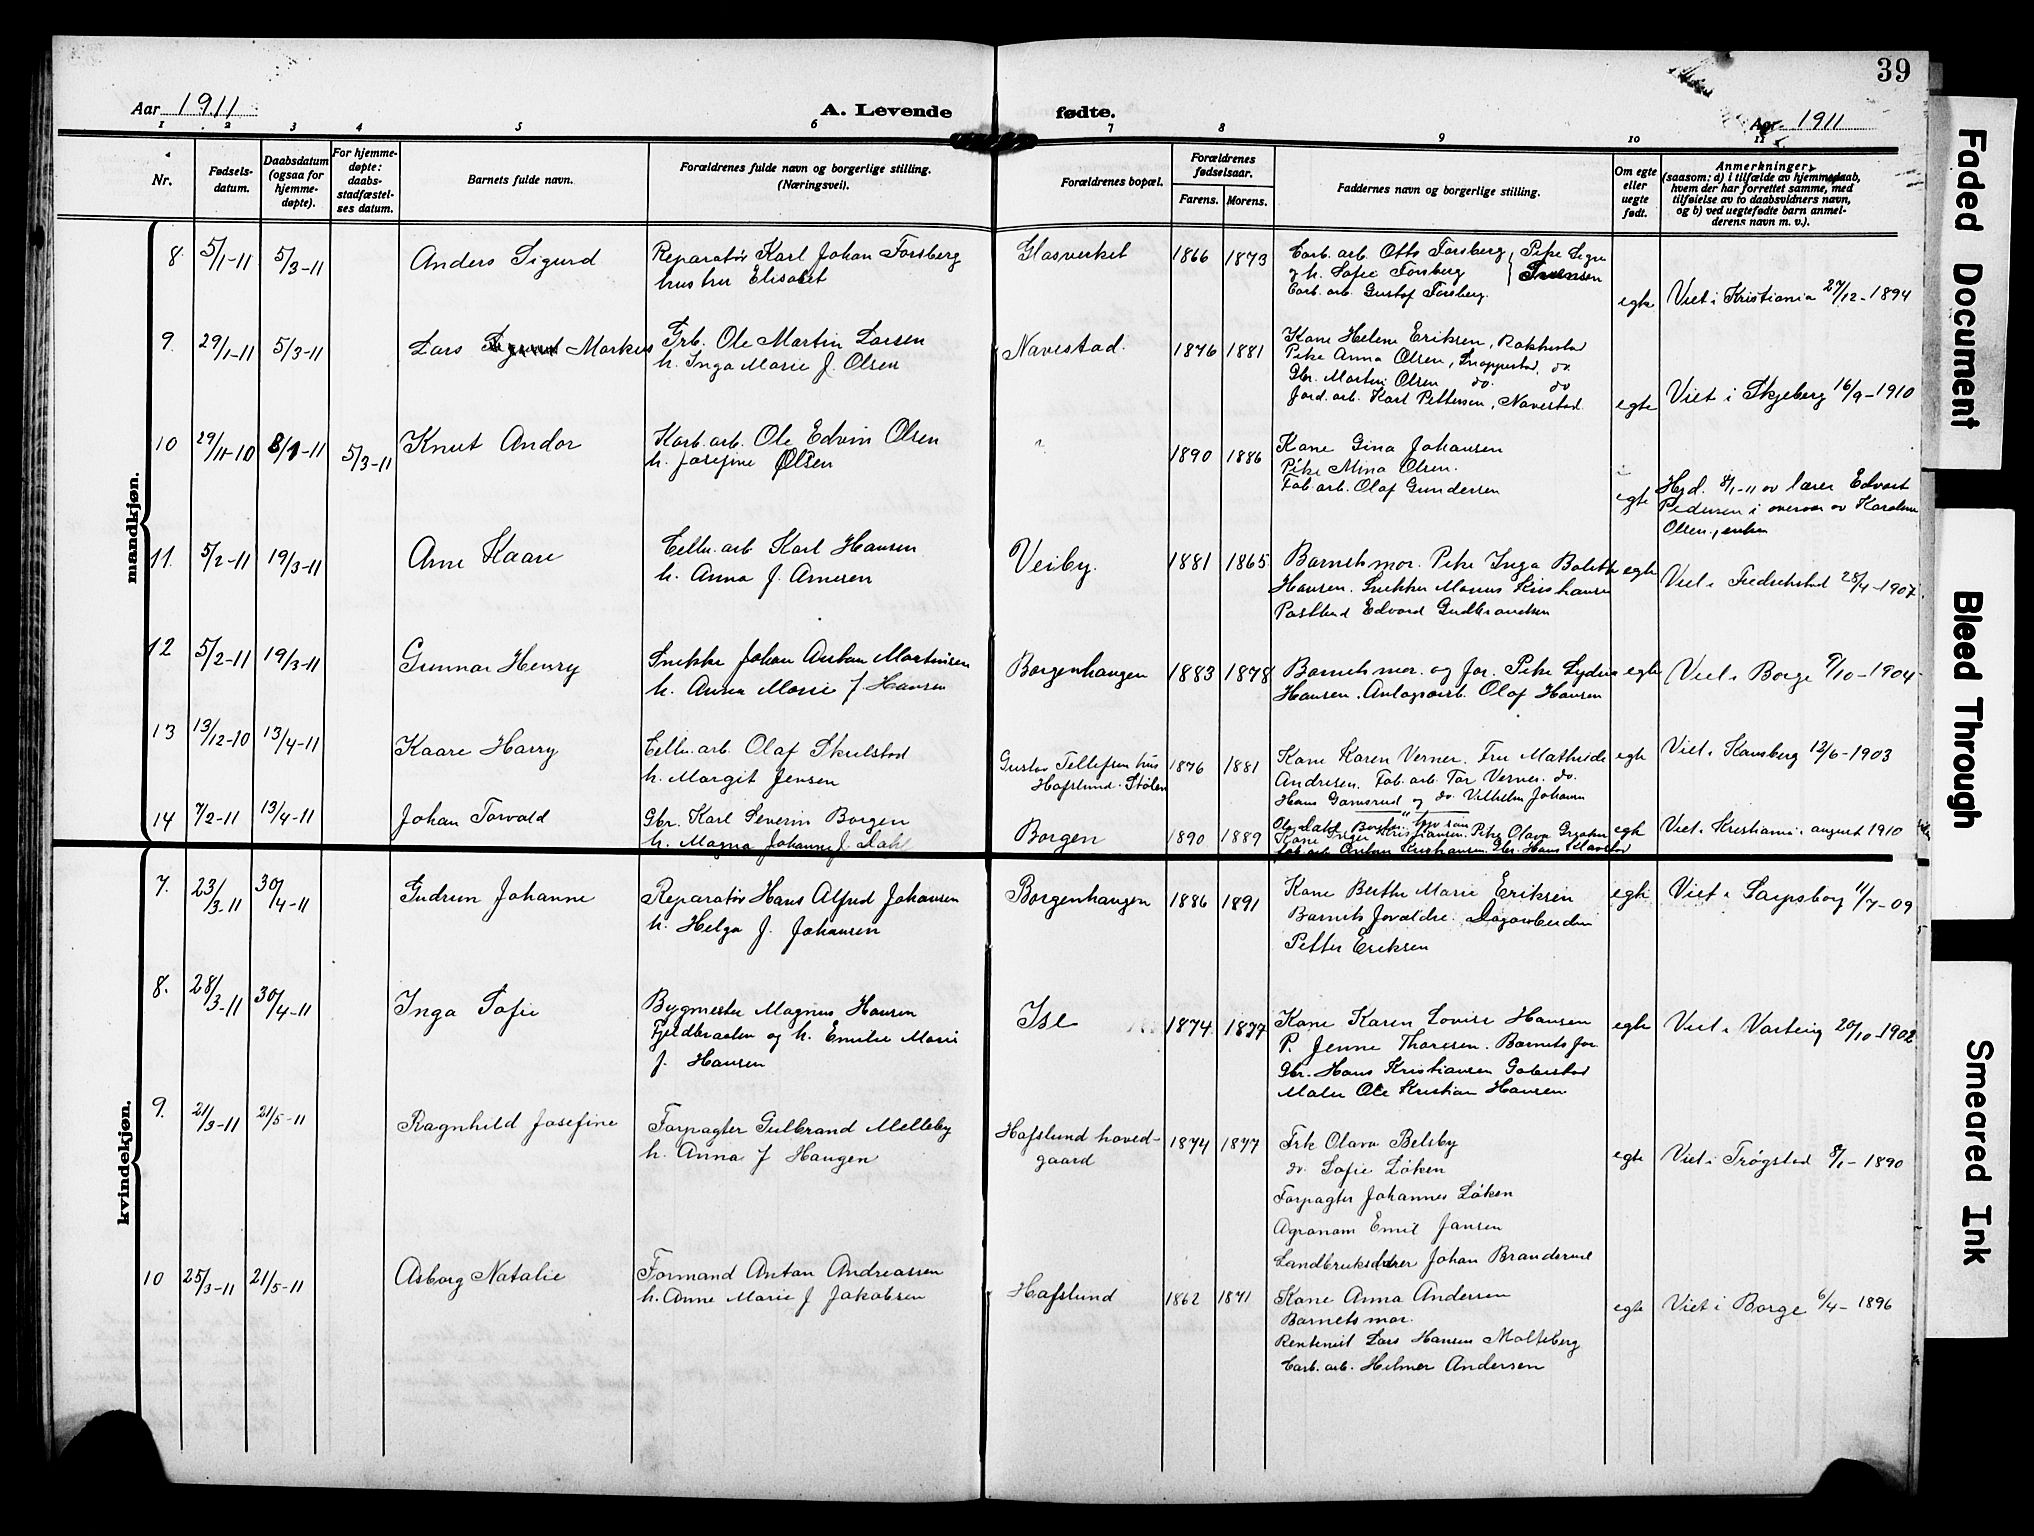 39
Aar 1911
A. Levende fødte.
Aar 1911
1 2 3 4 5 6 7 8 9 10 11
Nr.
Fødselsdatum.
Daabsdatum (ogsaa for hjemmedøpte).
For hjemmedøpte: daabsstadfæstelses datum.
Barnets fulde navn.
Forældrenes fulde navn og borgerlige stilling. (Næringsvei).
Forældrenes bopæl.
Forældrenes fødselsaar.
Farens. Morens.
Faddernes navn og borgerlige stilling.
Om egte eller uegte født.
Anmerkninger
(saasom: a) i tilfælde av hjemmedaab, hvem der har forrettet samme, med tilføielse av to daabsvidners navn, og b) ved uegtefødte barn anmelderens navn m. v.).
mandkjøn.
8. 5/1-11 5/3-11 Anders Sigurd
Reparatør Karl Johan Forsberg
hustru Elisabet
Glasverket 1866 1873
Carb. arb. Otto Forsberg, Pike Signe
og h. Sofie Forsberg
Carb. arb. Gustaf Forsberg.
egte Viet i Kristiania 27/12-1894
9. 29/1-11 5/3-11 Lars Markus
Grb. Ole Martin Larsen
h. Inga Marie f. Olsen
Navestad. 1876 1881
Kone Helene Eriksen, Rakkestad
Pike Anna Olsen, do.
Gbr. Martin Olsen do. do
Jord. arb. Karl Pettersen, Navestad.
egte Viet i Skjeberg 16/9-1910
10 29/11-10 8/1-11 5/3-11 Knut Andor
Karb. arb. Ole Edvin Olsen
h. Josefine Olsen
" 1890 1886
Kone Gina Johansen
Pike Mina Olsen.
Fab. arb. Olaf Gundersen
egte Hjd. 8/1-11 av lærer Edvart
Pedersen i overvær av Karoline
Olsen, enke
11. 5/2-11 19/3-11 Arne Kaare
Cellu. arb Karl Hansen
h. Anna f. Arnesen
Veiby. 1881 1865
Barnets mor. Pike Inga Bolette
Hansen. Snekker Marius Kristiansen
Postbud Edvard Gudbrandsen
egte Viet i Fredrikstad 28/4-1907.
12 5/2-11 19/3-11 Gunnar Henry
Snekke Johan Anton Martinsen
h. Anna Marie f Hansen
Borgenhaugen 1883 1878
Barnets mor. og far. Pike Lydia
Hansen. Anlagsarb. Olaf Hansen
egte Viet i Borge 9/10-1904
13 13/12-10 13/4-11 Kaare Harry
Cellu. arb. Olaf Skulstad
h. Margit Jensen
Gustav Tellefsen hus
Hafslund. Stølen
1876 1881
Kone Karen Verner. Fru Mathilde
Andresen. Fab. arb. Tor Verner. do.
Hans Gamsrud og do. Vilhelm Johansen
egte Viet i Kongsberg 12/6-1903
14 7/2-11 13/4-11 Johan Torvald
Gbr. Karl Severin Borgen
h. Magna Johanne f. Dahl
Borgen 1890 1889
egte Viet i Kristiania. august 1910
kvindekjøn.
7. 23/3-11 30/4-11 Gudrun Johanne
Reparatør Hans Alfred Johansen
h. Helga f. Johansen
Borgenhaugen 1886 1891
Kone Berthe Marie Eriksen
Barnets forældre. Dagarbeider
Petter Eriksen
egte Viet i Sarpsborg 11/7-09
8. 28/3-11 30/4-11 Inga Sofie
Bygmester Magnus Hansen
Fjeldbraaten og h. Emilie Marie
f. Hansen
Ise 1874 1877
Kone Karen Lovise Hansen
P. Jenne Thoresen. Barnets far
Gbr. Hans Kristiansen Golerstad
Maler Ole Kristian Hansen
egte Viet i Varteig 20/10-1902
9. 21/3-11 21/5-11 Ragnhild Josefine
Forpagter Gulbrand Melleby
h. Anna f Haugen
Hafslund hovedgaard 1874 1877
Frk Olava Belsby
do. Sofie Løken
Forpagter Johannes Løken
Agronom Emil Jansen
Landbrukslærer Johan Brandsrud
egte Viet i Trøgstad 8/1-1890
10 25/3-11 21/5-11 Asborg Natalie
Formand Anton Andreassen
h. Anne Marie f Jakobsen
Hafslund 1862 1871
Kone Anna Andersen
Barnets mor.
Rentenist Lars Hansen Molteberg
Carb. arb. Helmer Andersen
egte Viet i Borge 6/4-1896
Faded Document
Bleed Through
Smeared Ink